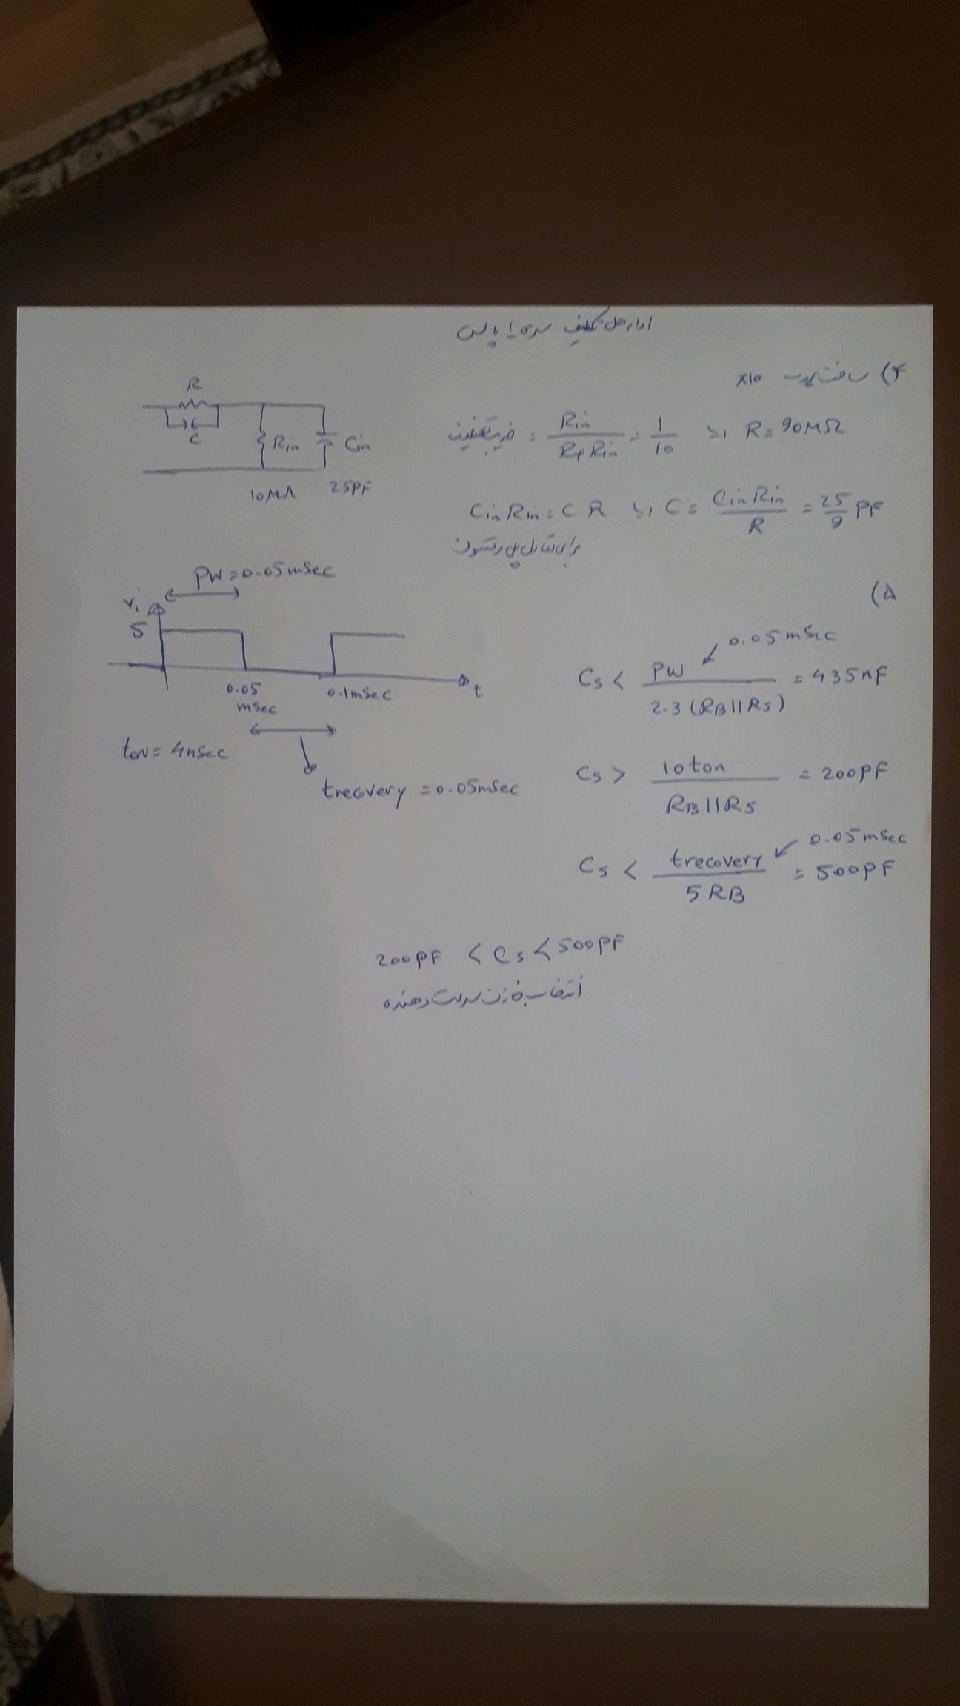 ادامه حل تکلیف سری ۱ پالس
۴) ساخت پروب x10
R
C
Rin
Cin
10MΩ
25PF
ضریب تضعیف = Rin / R+Rin = 1/10 => R = 90MΩ
Cin Rin = C R => C = Cin Rin / R = 25/9 PF
برای تعادل پل وتستون
۵)
PW = 0.05 mSec
Vi
5
0.05 mSec
0.1 mSec
t
ton = 4nSec
trecovery = 0.05mSec
Cs < PW / 2.3 (RB||RS) = 435nF
0.05 mSec
Cs > 10 ton / RB||RS = 200PF
Cs < trecovery / 5 RB = 500PF
0.05 mSec
200PF < Cs < 500PF
انتخاب خازن سرعت دهنده